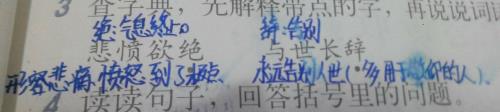 3 查字典，先解释带点的字，再说说词
绝：气息终止。 辞：告别
悲愤欲绝 与世长辞
形容悲痛愤怒到了极点 永远告别人世（多用于敬仰的人）。
4 读读句子，回答括号里的问题